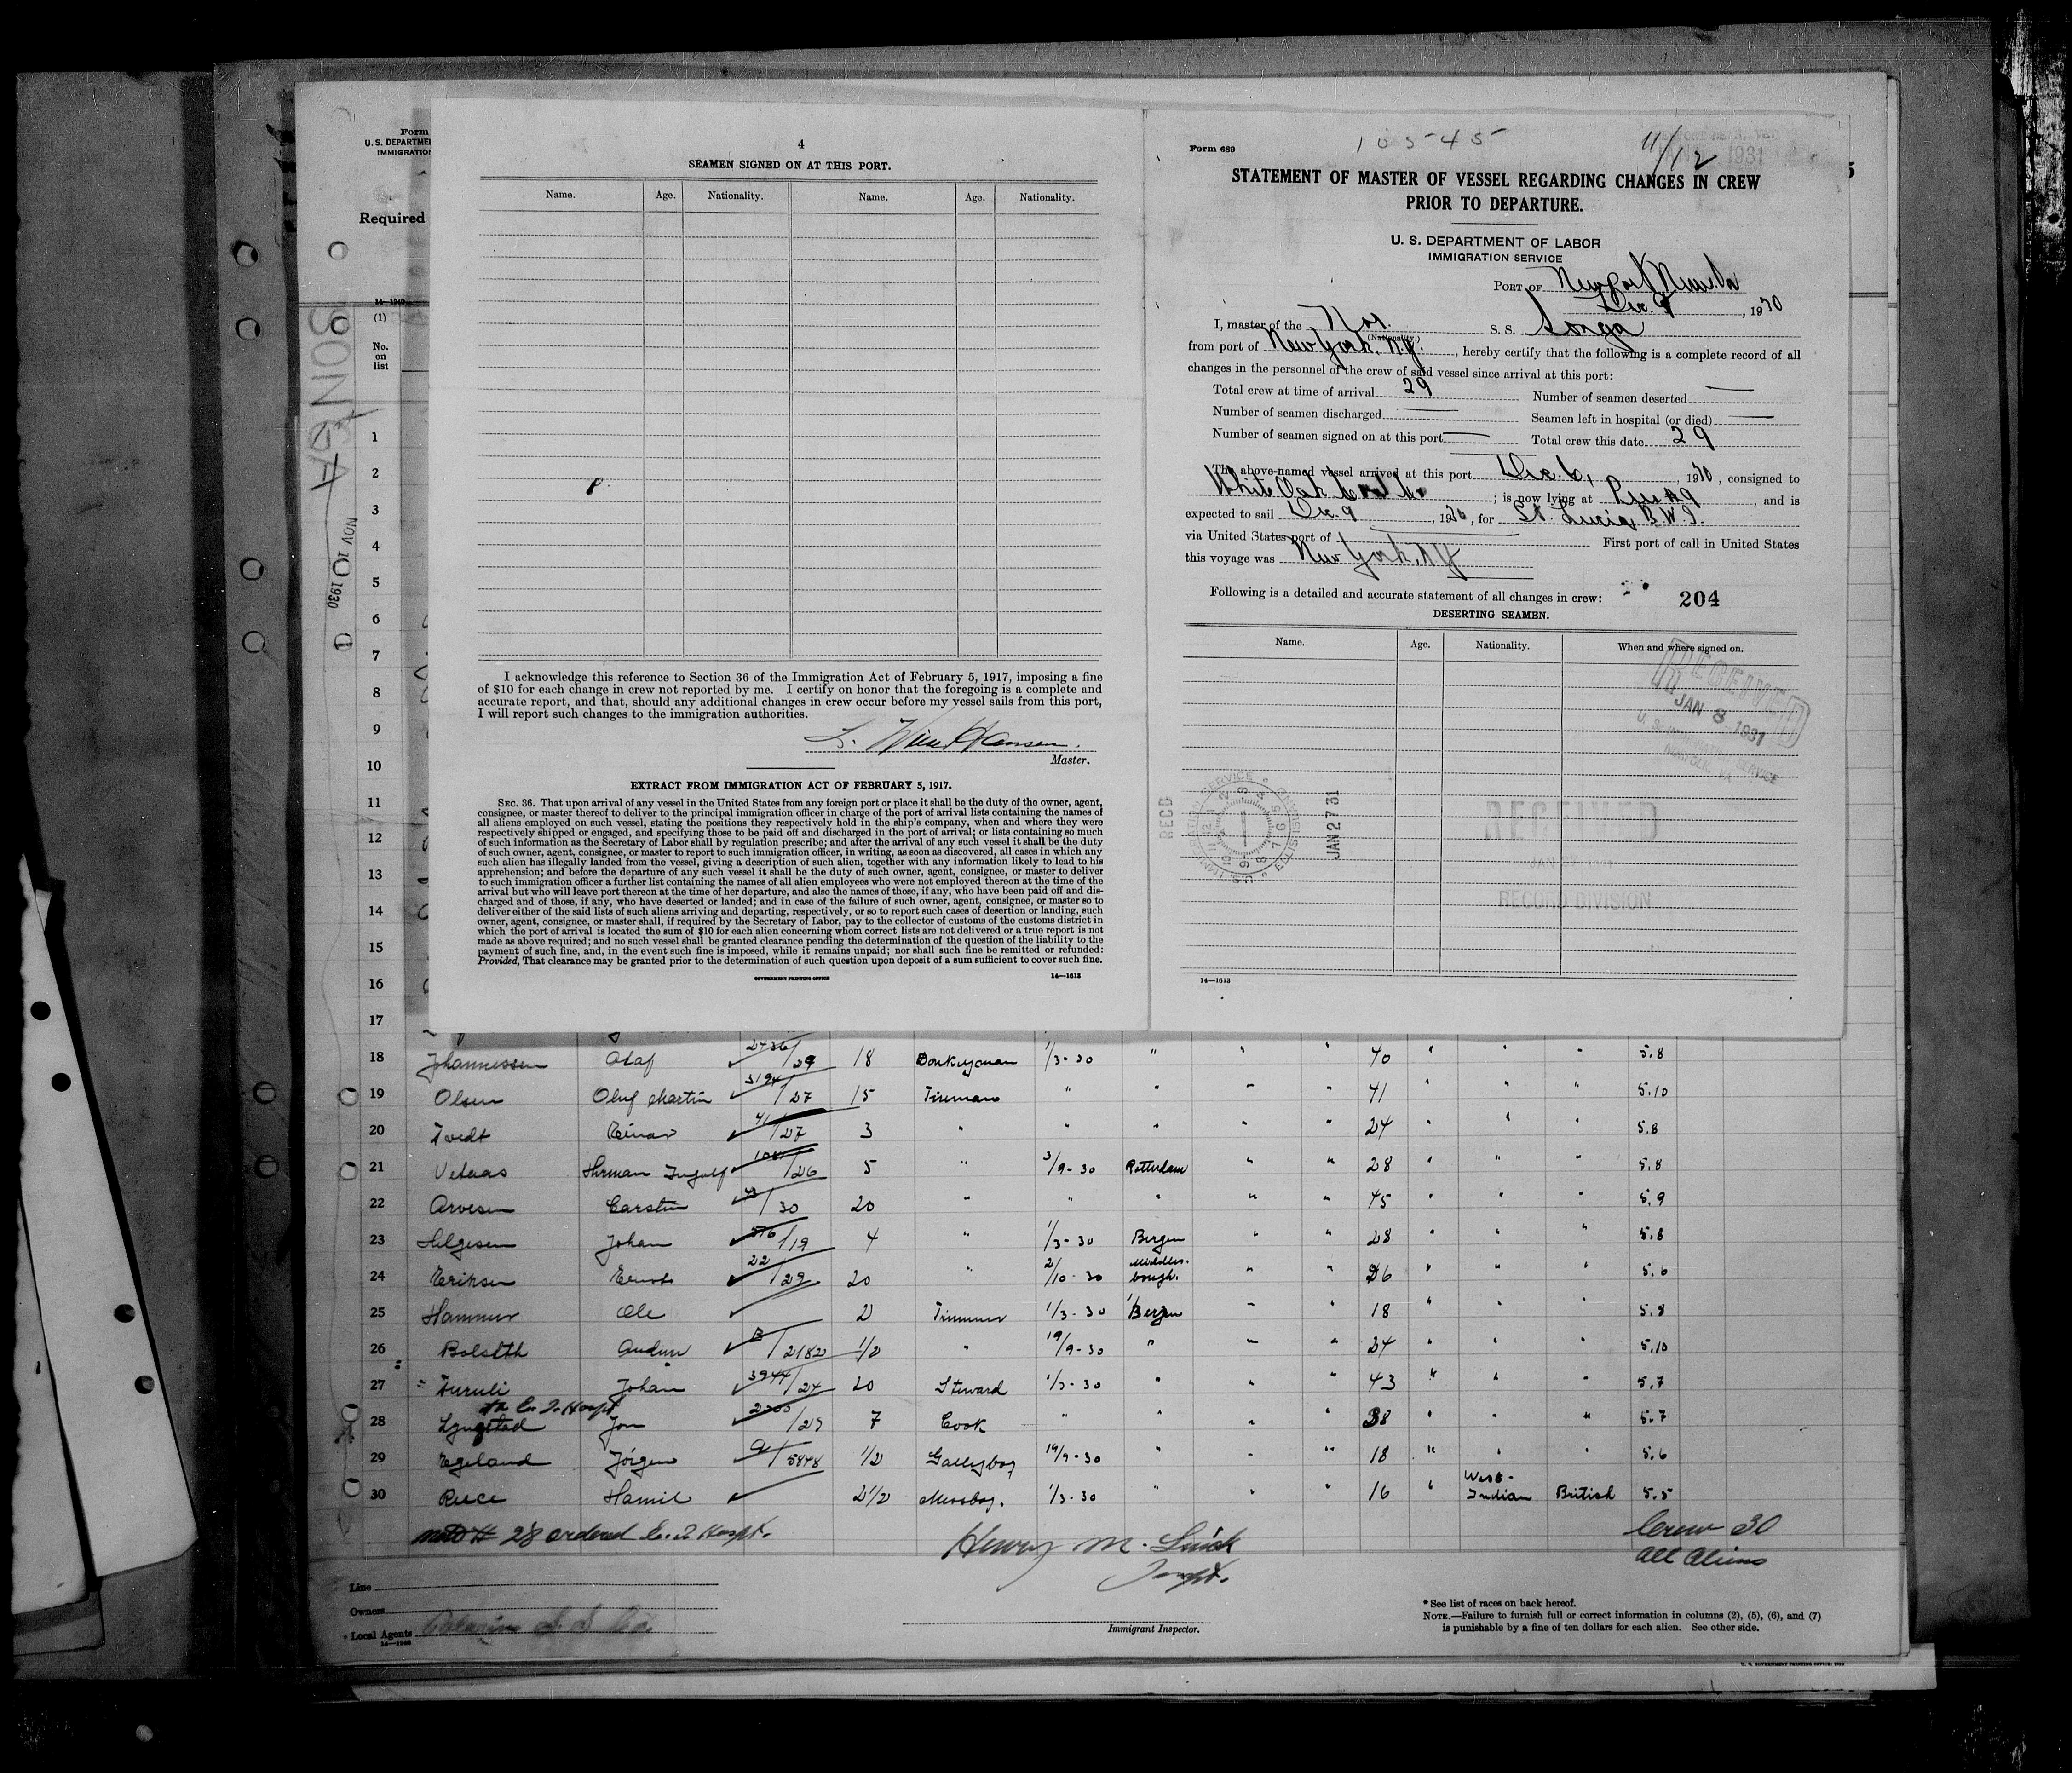 Form
U. S. DEPARTME
IMMIGRATION
Required
14—1240
(1)
No.
on
list
SONGA
NOV 10 1930
1
2
3
4
5
6
7
8
9
10
11
12
13
14
15
16
17
4
SEAMEN SIGNED ON AT THIS PORT.
Name. Age. Nationality. Name. Age. Nationality.
I acknowledge this reference to Section 36 of the Immigration Act of February 5, 1917, imposing a fine
of $10 for each change in crew not reported by me. I certify on honor that the foregoing is a complete and
accurate report, and that, should any additional changes in crew occur before my vessel sails from this port,
I will report such changes to the immigration authorities.
Hansen.
Master.
EXTRACT FROM IMMIGRATION ACT OF FEBRUARY 5, 1917.
SEC. 36. That upon arrival of any vessel in the United States from any foreign port or place it shall be the duty of the owner, agent,
consignee, or master thereof to deliver to the principal immigration officer in charge of the port of arrival lists containing the names of
all aliens employed on such vessel, stating the positions they respectively hold in the ship's company, when and where they were
respectively shipped or engaged, and specifying those to be paid off and discharged in the port of arrival; or lists containing so much
of such information as the Secretary of Labor shall by regulation prescribe; and after the arrival of any such vessel it shall be the duty
of such owner, agent, consignee, or master to report to such immigration officer, in writing, as soon as discovered, all cases in which any
such alien has illegally landed from the vessel, giving a description of such alien, together with any information likely to lead to his
apprehension; and before the departure of any such vessel it shall be the duty of such owner, agent, consignee, or master to deliver
to such immigration officer a further list containing the names of all alien employees who were not employed thereon at the time of the
arrival but who will leave port thereon at the time of her departure, and also the names of those, if any, who have been paid off and dis-
charged and of those, if any, who have deserted or landed; and in case of the failure of such owner, agent, consignee, or master so to
deliver either of the said lists of such aliens arriving and departing, respectively, or so to report such cases of desertion or landing, such
owner, agent, consignee, or master shall, if required by the Secretary of Labor, pay to the collector of customs of the customs district in
which the port of arrival is located the sum of $10 for each alien concerning whom correct lists are not delivered or a true report is not
made as above required; and no such vessel shall be granted clearance pending the determination of the question of the liability to the
payment of such fine, and, in the event such fine is imposed, while it remains unpaid; nor shall such fine be remitted or refunded:
Provided, That clearance may be granted prior to the determination of such question upon deposit of a sum sufficient to cover such fine.
GOVERNMENT PRINTING OFFICE 14—1613
105-45- 11/12 1931
Form 689
STATEMENT OF MASTER OF VESSEL REGARDING CHANGES IN CREW
PRIOR TO DEPARTURE.
U. S. DEPARTMENT OF LABOR
IMMIGRATION SERVICE
PORT OF Newport News Va
Dec. 9, 1930
I, master of the Nor. S. S. Songa
(Nationality.)
from port of New York, N.Y., hereby certify that the following is a complete record of all
changes in the personnel of the crew of said vessel since arrival at this port:
Total crew at time of arrival 29 Number of seamen deserted —
Number of seamen discharged — Seamen left in hospital (or died) —
Number of seamen signed on at this port — Total crew this date 29
The above-named vessel arrived at this port Dec. 6, 1930, consigned to
White Oak Coal Co ; is now lying at Pier #9, and is
expected to sail Dec. 9, 1930, for St. Lucia, B.W.I.
via United States port of — First port of call in United States
this voyage was New York, NY
Following is a detailed and accurate statement of all changes in crew: 204
DESERTING SEAMEN.
Name. Age. Nationality. When and where signed on.
RECEIVED
JAN 8 1931
U. S. IMMIGRATION SERVICE
NORFOLK, VA.
RECD
JAN 27 31
RECEIVED
JAN 27
RECORD DIVISION
14—1613
18 Johannessen Olaf 2436/29 18 Donkeyman 1/3-30 " " " 40 " " " 5.8
19 Olsen Oluf Martin 3194/27 15 Fireman " " " " 41 " " " 5.10
20 Tvedt Einar 41/27 3 " " " " " 24 " " " 5.8
21 Vetaas Herman Ingolf /26 5 " 3/9-30 Rotterdam " " 28 " " " 5.8
22 Arvesen Carsten /30 20 " " " " " 45 " " " 5.9
23 Helgesen Johan 516/19 4 " 1/3-30 Bergen " " 28 " " " 5.8
24 Eriksen Ernst 22/29 20 " 2/10-30 Middles-
bough. " " 26 " " " 5.6
25 Hammer Ole 2 Trimmer 1/3-30 Bergen " " 18 " " " 5.8
26 Bolseth Audun B/2182 1/2 " 19/9-30 " " " 24 " " " 5.10
27 Furuli Johan 3944/24 20 Steward 1/3-30 " " " 43 " " " 5.7
28 Lyngstad Jon /29 7 Cook " " " " 38 " " " 5.7
29 Egeland Jörgen 5848 1/2 Galleyboy 19/9-30 " " " 18 " " " 5.6
30 Reece Hamil 2 1/2 Messboy. 1/3-30 " " " 16 " West-
Indian British 5.5
28 ordered E. I Hospt.
Henry M.
Inspt.
Crew 30
All Aliens
Line
Owners
Local Agents S S Co.
14—1240
Immigrant Inspector.
* See list of races on back hereof.
NOTE.—Failure to furnish full or correct information in columns (2), (5), (6), and (7)
is punishable by a fine of ten dollars for each alien. See other side.